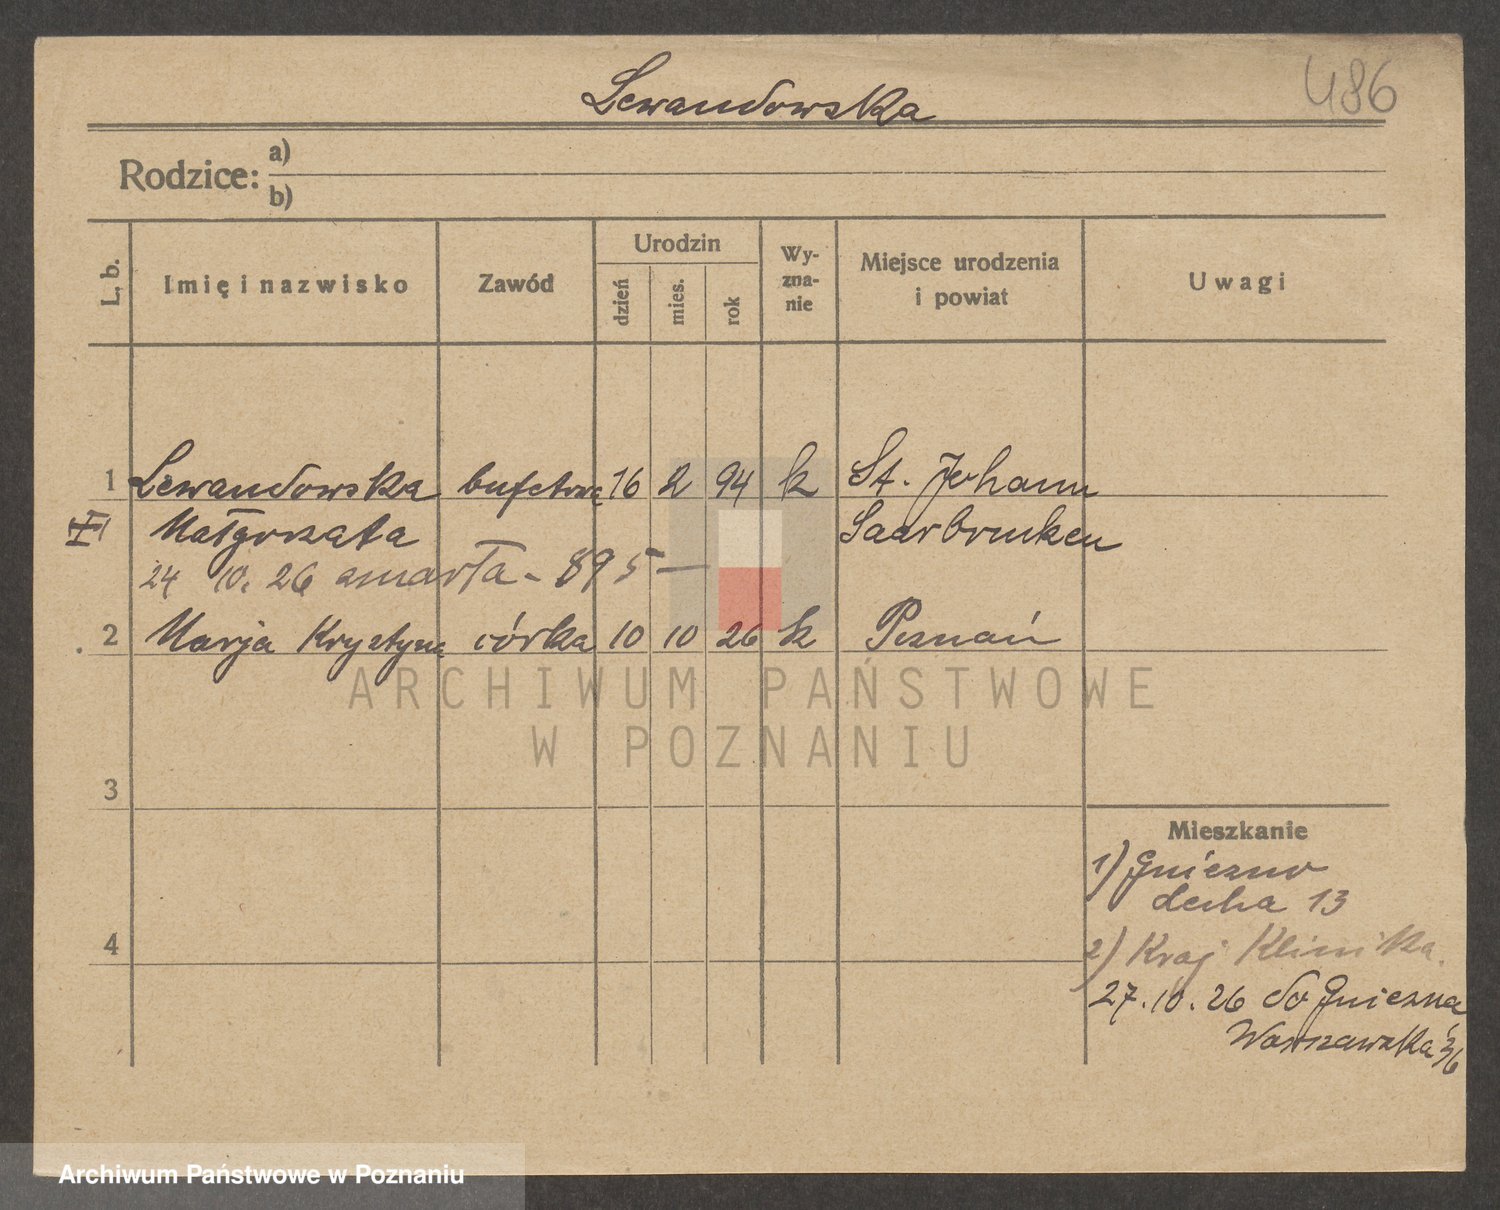 Lewandowska
486
Rodzice: a)
b)
L. b.
Imię i nazwisko
Zawód
Urodzin
dzień
mies.
rok
Wy-
zna-
nie
Miejsce urodzenia
i powiat
Uwagi
1 Lewandowska bufetowa 16 2 94 k St. Johann
Małgorzata Saarbrucken
24 10. 26 zmarła - 895 -
2 Marja Krystyna córka 10 10 26 k Poznań
ARCHIWUM PAŃSTWOWE
W POZNANIU
3
Mieszkanie
1) Gniezno
Lecha 13
4
2) Kraj Klinika.
27.10.26 do Gniezna
Warszawska 36
Archiwum Państwowe w Poznaniu